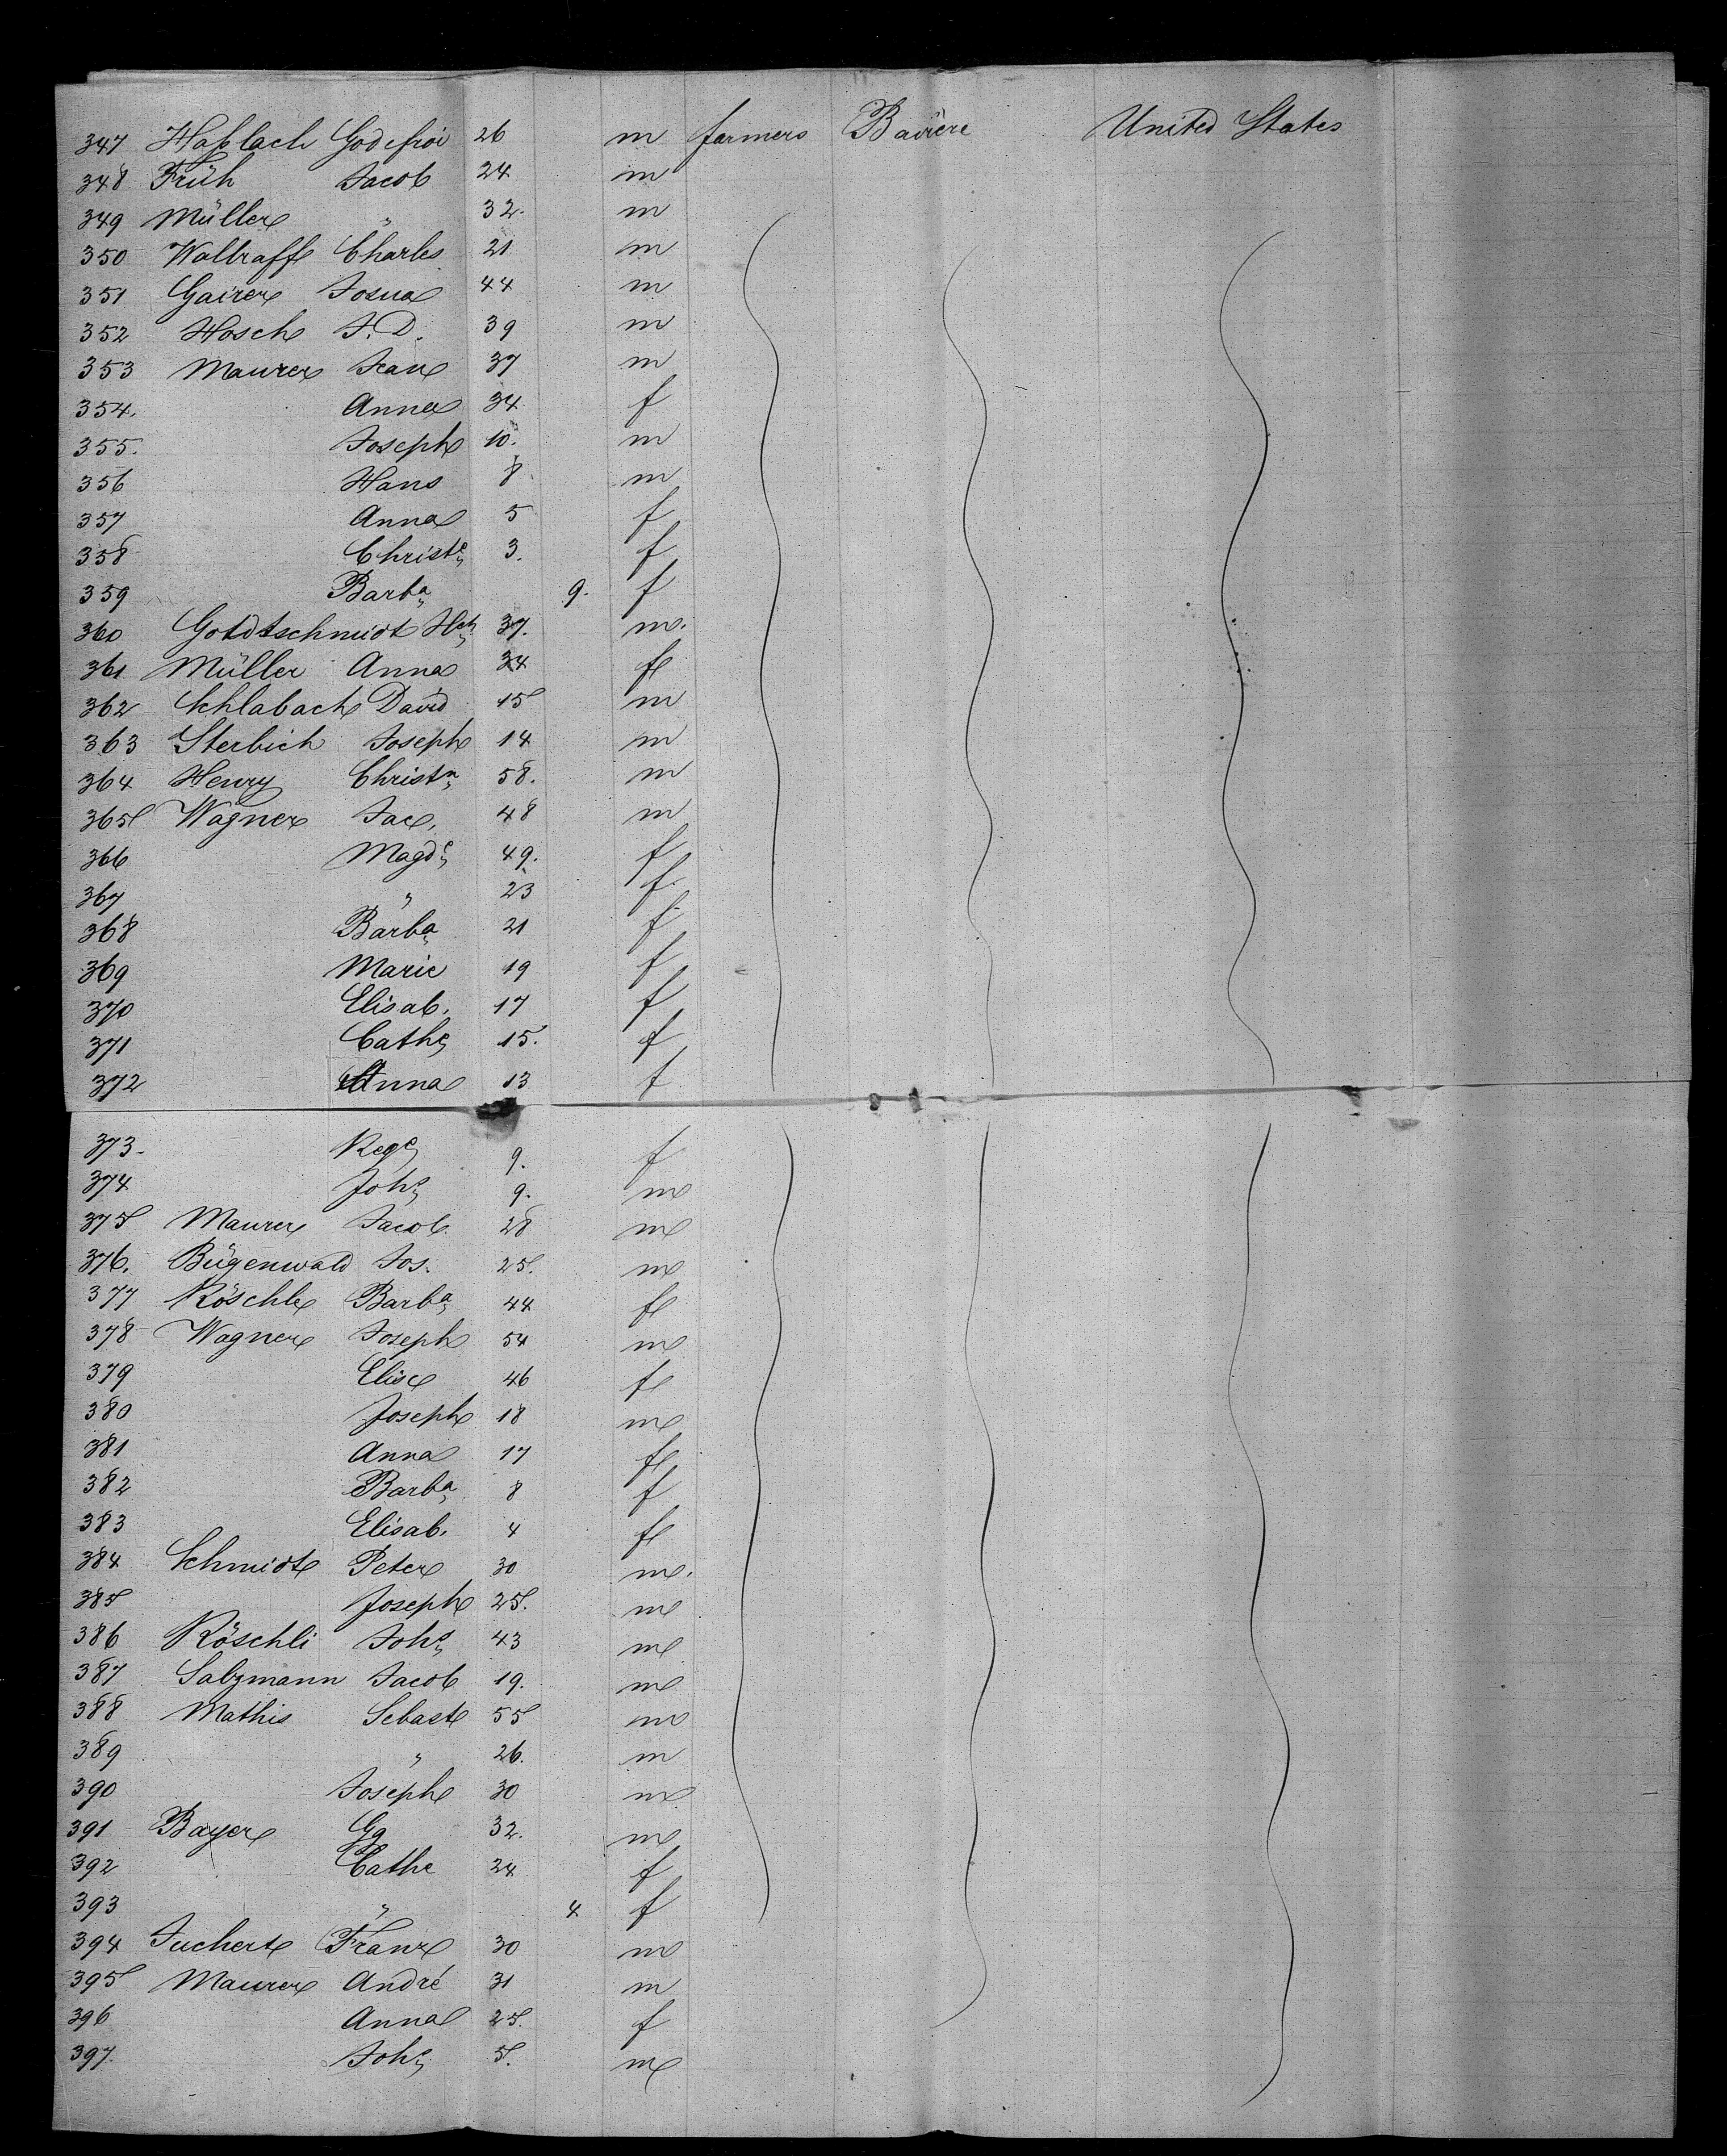 347 Haßlach Godefroi 26 m farmers Bavière United States
348 Früh Jacob 24 m
349 Müller " 32. m
350 Wallraff Charles 21 m
351 Gairer Josua 44 m
352 Hosch J. D. 39 m
353 Maurer Jean 37 m
354. Anna 34 f
355. Joseph 10. m
356 Hans 8 m
357 Anna 5 f
358 Christe 3. f
359 Barba 9. f
360 Goldtschmidt Hch 37. m.
361 Müller Anna 34 f
362 Schlabach David 15 m
363 Sterbich Joseph 14 m
364 Henry Christn 58. m
365 Wagner Jac. 48 m
366 Magde 49. f
367 " 23 f
368 Barba 21 f
369 Marie 19 f
370 Elisab. 17 f
371 Cathe 15. f
372 Anna 13 f
373. Rege 9. f
374 Johs 9. m
375 Maurer Jacob. 28 m
376. Bügenwald Jos. 25. m
377 Röschle Barba 44 f
378 Wagner Joseph 54 m
379 Elise 46 f
380 Joseph 18 m
381 Anna 17 f
382 Barba 8 f
383 Elisab. 4 f
384 Schmidt Peter 30 m.
385 Joseph 25. m
386 Röschli Johs 43 m
387 Salzmann Jacob 19. m
388 Mathis Sebast 55 m
389 " 26. m
390 Joseph 30 m
391 Bayer Gg 32. m
392 Cathe 24 f
393 " 4 f
394 Juchert Franz 30 m
395 Maurer André 31 m
396 Anna 25. f
397. Johs 5. m